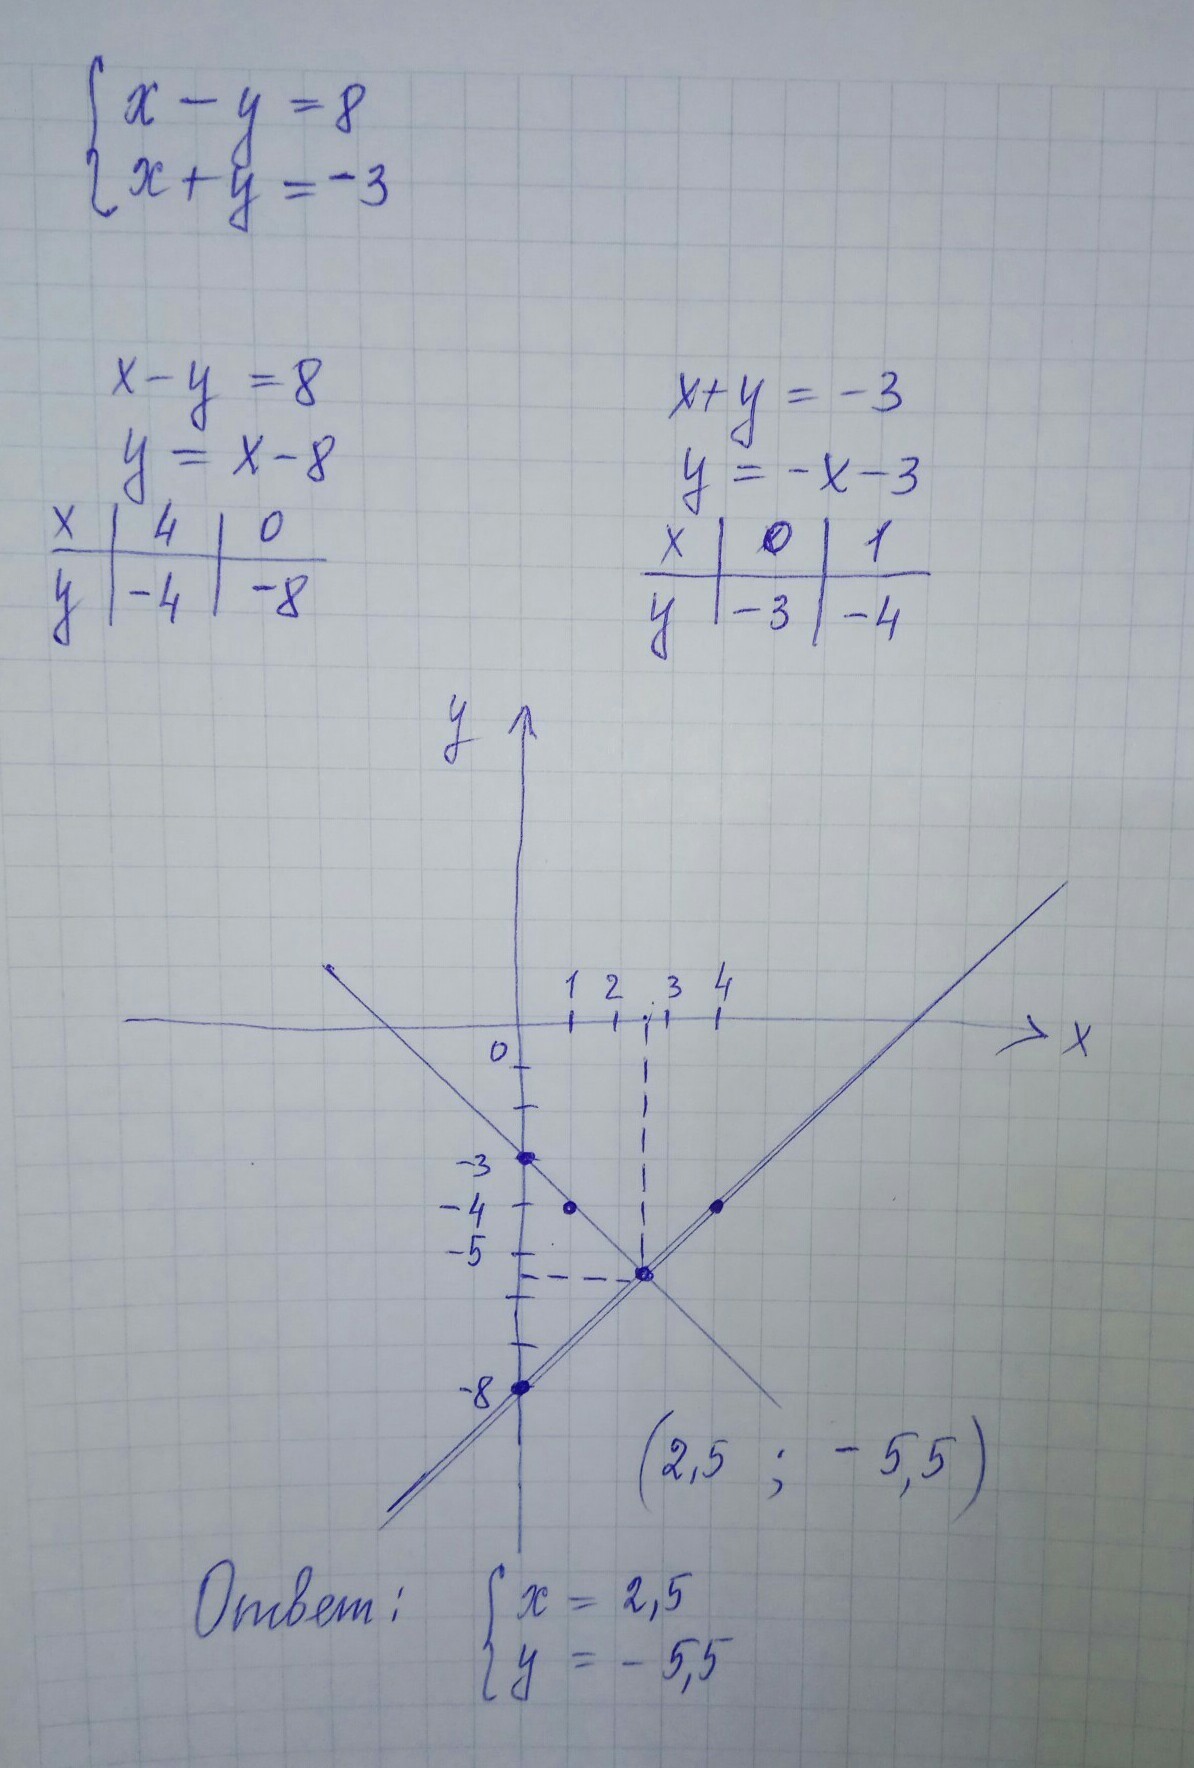 { x - y = 8
x + y = -3
x - y = 8
y = x - 8
x | 4 | 0
y | -4 | -8
x + y = -3
y = -x - 3
x | 0 | 1
y | -3 | -4
y
1 2 3 4
0
x
-3
-4
-5
-8
(2,5 ; -5,5)
Ответ: { x = 2,5
y = -5,5